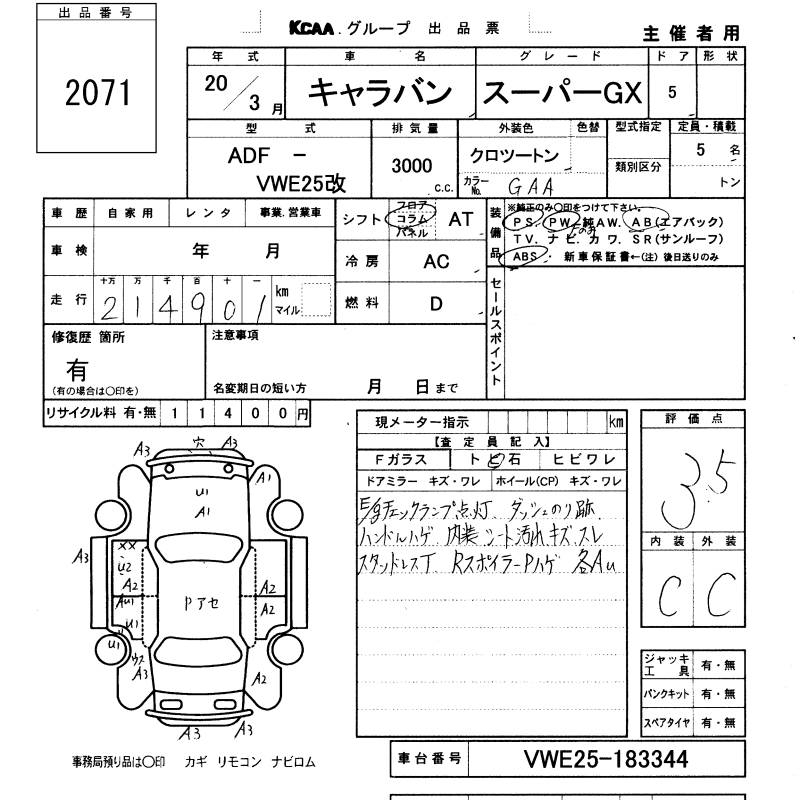 出品番号
2071
KCAA グループ 出品票
主催者用
年式 車名 グレード ドア 形状
20/3月 キャラバン スーパーGX 5
型式 排気量 外装色 色替 型式指定 定員・積載
ADF -
VWE25改
3000 c.c.
クロツートン
カラーNo. GAA
類別区分
5 名
トン
車歴 自家用 レンタ 事業.営業車
車検 年 月
走行 十万 万 千 百 十 一
214901 km
マイル
シフト フロア コラム パネル AT
冷房 AC
燃料 D
装備品
※純正のみ〇印をつけて下さい。
PS. PW. 純AW. AB(エアバック)
TV. ナビ. カワ. SR(サンルーフ)
ABS. 新車保証書←(注)後日送りのみ
セールスポイント
修復歴 箇所
有
(有の場合は〇印を)
注意事項
名変期日の短い方 月 日まで
リサイクル料 有・無 11400円
現メーター指示 km
【査定員記入】
Fガラス トビ石 ヒビワレ
ドアミラー キズ・ワレ ホイール(CP) キズ・ワレ
E/gチェックランプ点灯、ダッシュのり跡、
ハンドルハゲ、内装シート汚れキズ、スレ
スタッドレスT、RスポイラーPハゲ 各Au
評価点
3.5
内装 外装
C C
ジャッキ
工具 有・無
パンクキット 有・無
スペアタイヤ 有・無
A3 穴 A3
A1
U1
A1
A3
XX
U2
A2
AU1
U1
U1
Pアセ
A2
A2
A3
ウス
A3
A2
A3 A3
事務局預り品は〇印 カギ リモコン ナビロム
車台番号 VWE25-183344